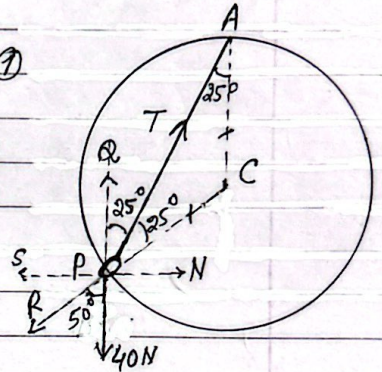 ①
A
25°
T
Q
C
25°
25°
S
P
N
R
50°
40N